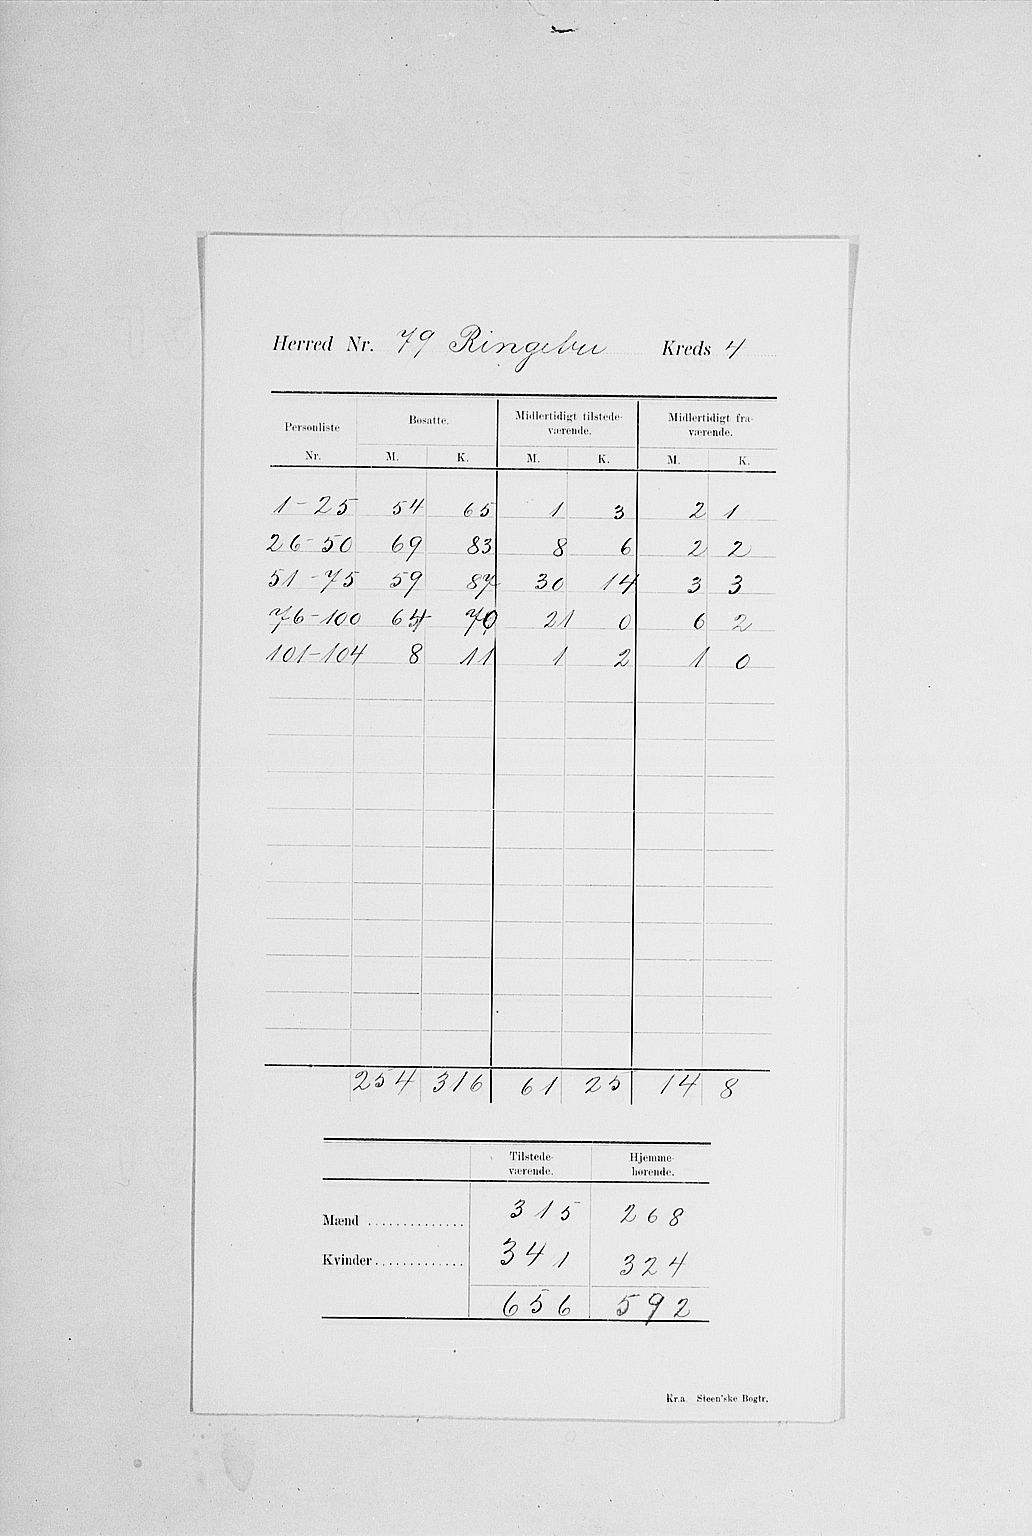 Herred Nr. 79 Ringebu Kreds 4
Personliste Nr. Bosatte. Midlertidigt tilstede- Midlertidigt fra-
værende. værende.
M. K. M. K. M. K.
1-25 54 65 1 3 2 1
26-50 69 83 8 6 2 2
51-75 59 87 30 14 3 3
76-100 64 70 21 0 6 2
101-104 8 11 1 2 1 0
254 316 61 25 14 8
Tilstede- Hjemme-
værende. hørende.
Mænd .............. 315 268
Kvinder ............. 341 324
656 592
Kr.a Steen'ske Bogtr.